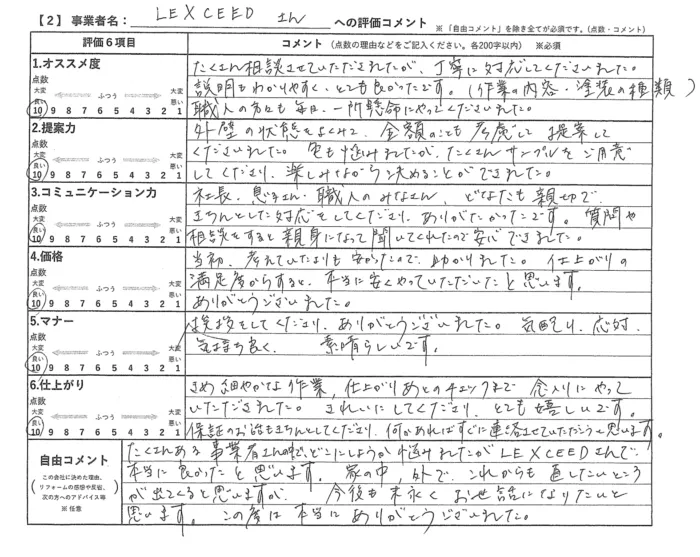 【2】事業者名： LEXCEED さん への評価コメント ※「自由コメント」を除き全てが必須です。（点数・コメント）
評価6項目
コメント（点数の理由などをご記入ください。各200字以内） ※必須
1.オススメ度
点数
大変良い ふつう 大変悪い
10 9 8 7 6 5 4 3 2 1
たくさん相談させていただきましたが、丁寧に対応してくださいました。
説明もわかりやすく、とても良かったです。（作業の内容・塗装の種類）
職人の方々も毎日、一所懸命にやってくださいました。
2.提案力
点数
大変良い ふつう 大変悪い
10 9 8 7 6 5 4 3 2 1
外壁の状態をよくみて、金額のことも考慮して提案して
くださいました。色も悩みましたが、たくさんサンプルをご用意
してくださり、楽しみながら決めることができました。
3.コミュニケーション力
点数
大変良い ふつう 大変悪い
10 9 8 7 6 5 4 3 2 1
社長、息子さん・職人のみなさん、どなたも親切で
きちんとした対応をしてくださり、ありがたかったです。質問や
相談をすると親身になって聞いてくれたので安心できました。
4.価格
点数
大変良い ふつう 大変悪い
10 9 8 7 6 5 4 3 2 1
当初、考えていたよりも安かったので、助かりました。仕上がりの
満足度からすると、本当に安くやっていただいたと思います。
ありがとうございました。
5.マナー
点数
大変良い ふつう 大変悪い
10 9 8 7 6 5 4 3 2 1
挨拶をしてくださり、ありがとうございました。気配り、応対、
気持ち良く、素晴らしいです。
6.仕上がり
点数
大変良い ふつう 大変悪い
10 9 8 7 6 5 4 3 2 1
きめ細やかな作業、仕上がりあとのチェックまで念入りにやって
いただきました。きれいにしてくださり、とても嬉しいです。
保証のお話もきちんとしてくださり、何かあればすぐに連絡させていただこうと思います。
自由コメント
（この会社に決めた理由、リフォームの感想や反省、次の方へのアドバイス等）
※ 任意
たくさんある事業者さんの中で、どこにしようか悩みましたがLEXCEEDさんで
本当に良かったと思います。家の中、外で、これからも直したいところ
が出てくると思いますが、今後も末永くお世話になりたいと
思います。この度は本当にありがとうございました。